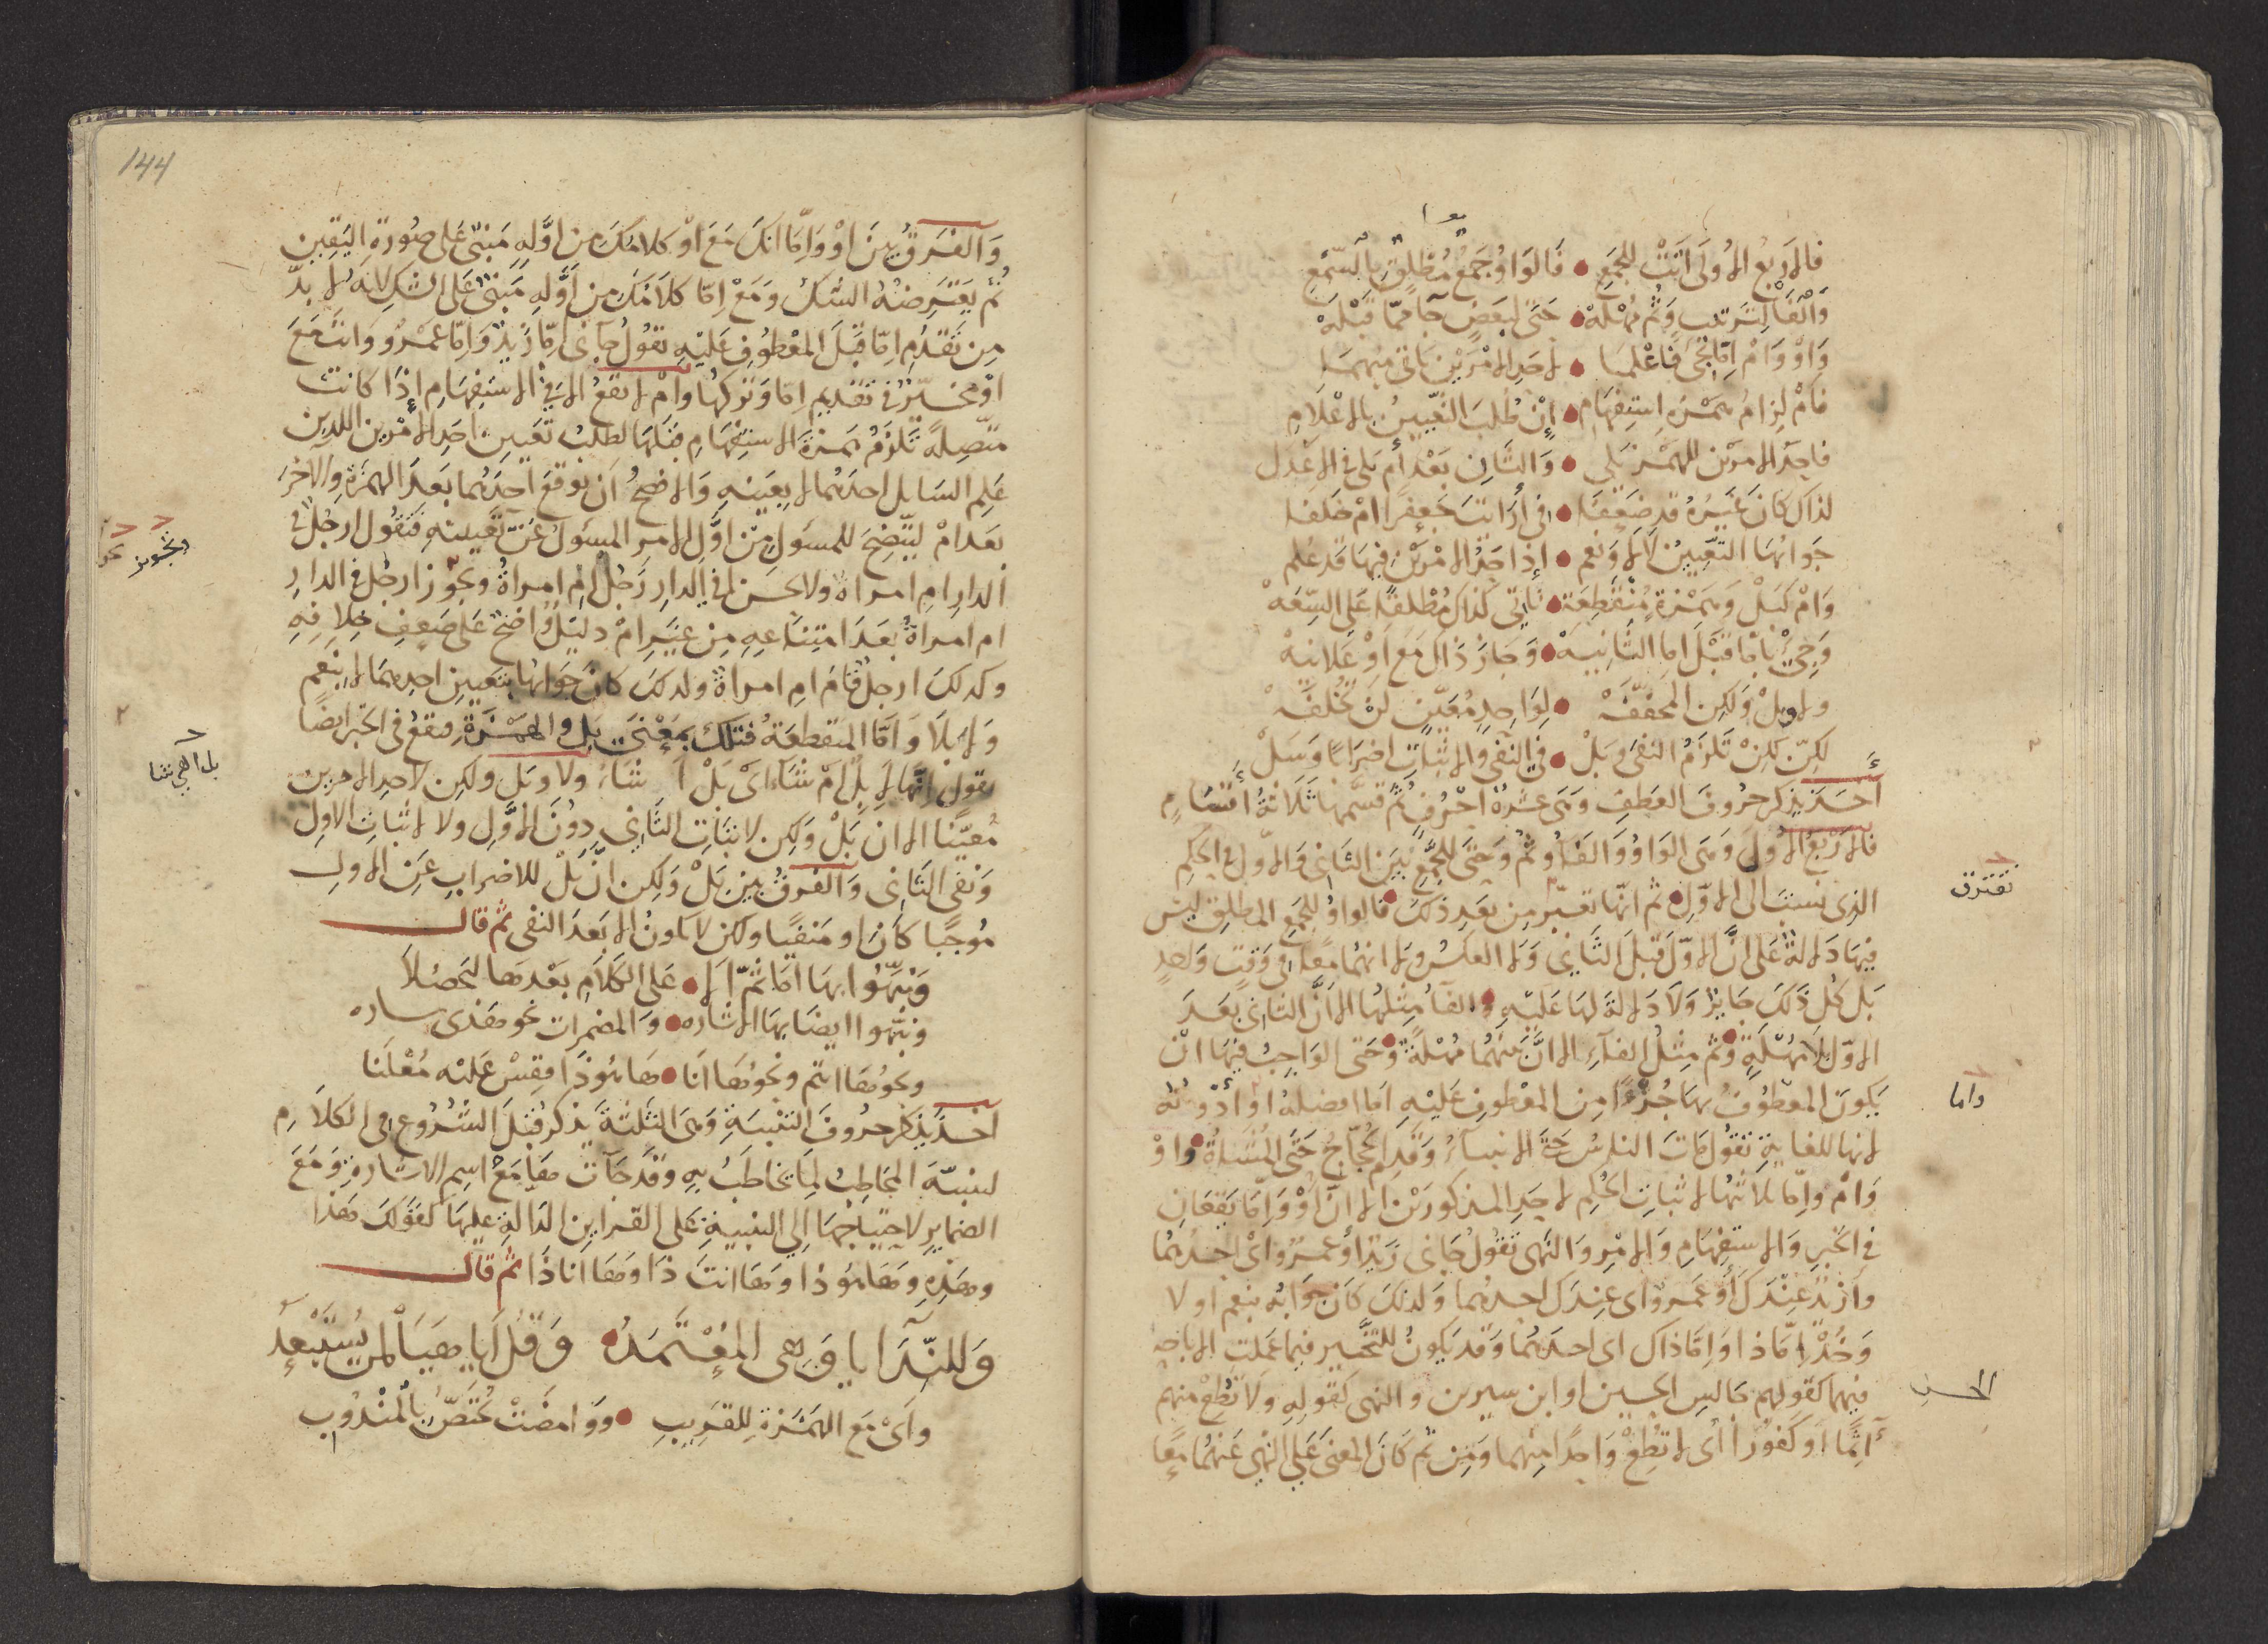 فالاربع الاولى اتت للجمع • فالواو جمع مطلق بالسمع
والفا لترتيب وثم مهله • حتى لبعض جا مما قبله
واو وام اما تجى فاعلما • لاحد الامرين ياتى مبهما
فام لزام همزة استفهام • ان طلب التعيين بالاعلام
فاحد الامرين للهمز يلى • والثان بعد أم يلى فى الاعدل
لذاك كان غيره قد ضعفا • فى أرايت جعفرا ام خلفا
جوابها التعيين لا لا ونعم • اذ احد الامرين فيها قد علم
وام كبل وهمزة منقطعة • تاتى كذاك مطلقا على السعه
وجئ باما قبل اما الثانيه • وجاز ذاك مع او علانيه
ولا وبل ولكن المخففه • لواحد معين لن تخلفه
لكن لكن تلزم النفى وبل • فى النفى والاثبات اضرابا وسل
أخذ يذكر حروف العطف وهى عشرة احرف ثم قسمها ثلاثة أقسام
فالاربع الاول وهى الواو والفا وثم وحتى للجمع بين الثانى والاول فى الحكم
الذى نسبت الى الاول ثم انها تفترق من بعد ذلك فالواو للجمع المطلق ليس
فيها دلالة على ان الاول قبل الثانى ولا العكس ولا انهما معا فى وقت واحد
بل كل ذلك جايز ولا دلالة لها عليه والفا مثلها الا ان الثانى بعد
الاول بلا مهلة وثم مثل الفاء الا ان بينهما مهلة وحتى الواجب فيها ان
يكون المعطوف بها جزءا من المعطوف عليه اما افضله او أدونه
لانها للغاية تقول مات الناس حتى الانبياء وقدم الحجاج حتى المشاة واو
وام واما ثلاثتها لاثبات الحكم لاحد المذكورين الا ان او واما يقعان
فى الخبر والاستفهام والامر والنهى تقول جانى زيد أو عمرو اى احدهما
وازيد عندك أو عمرو اى عندك احدهما ولذلك كان جوابه بنعم او لا
وخذ اما ذا واما ذاك اى احدهما وقد يكون للتخيير فيما عملت الاباحة
فيهما كقولهم جالس الحسن او ابن سيرين والنهى كقوله ولا تطع منهم
آثما أو كفورا أى لا تطع واحدا منهما ومن ثم كان المعنى على النهى عنهما معا
تفترق
واما
الحسن
144
والفرق بين او واما انك مع او كلامك من اوله مبنى على صورة اليقين
ثم يعترضه الشك ومع اما كلامك من أوله مبنى على الشك لانه لا بد
من تقدم اما قبل المعطوف عليه تقول جانى اما زيد واما عمرو وانت مع
او مخير فى تقديم اما وتركها وام لا تقع الا فى الاستفهام اذا كانت
متصلة تلزم همزة الاستفهام قبلها لطلب تعيين احد الامرين اللذين
علم السايل احدهما لا بعينه والافصح أن يوقع احدهما بعد الهمزة والاخر
بعد ام ليتضح للمسئول من اول الامر المسئول عن تعيينه فتقول ارجل فى
الدار ام امراة ولا يحسن افى الدار رجل ام امراة وتجوز ارجل فى الدار
ام امراة بعد امتناعه من غير ام دليل واضح على ضعف خلافه
وكذلك ارجل قام ام امراة ولذلك كان جوابها بتعيين احدهما لا بنعم
ولا بلا واما المنقطعة فتلك بمعنى بل والهمزة وتقع فى الخبر ايضا
تقول انها لابل ام شاء اى بل أ شاء ولا وبل ولكن لاحد الامرين
معينا الا ان بل ولكن لاثبات الثانى دون الاول ولا لاثبات الاول
ونفى الثانى والفرق بين بل ولكن ان بل للاضراب عن الاول
موجبا كان او منفيا ولكن لا يكون الا بعد النفى ثم قال
ونبهوا بها اما ثم الا • على الكلام بعدها لتحصلا
ونبهوا ايضا بها الاشاره • والمضمرات نحو هذى ساره
ونحو ها انتم ونحو ها انا • ها هو ذا فقس عليه معلنا
اخذ يذكر حروف التنبيه وهى الثلثة يذكر قبل الشروع فى الكلام
لينبه المخاطب لما يخاطب به وقد جات ها مع اسم الاشارة ومع
الضماير لاحتياجها الى التنبيه على القراين الدالة عليها كقولك هذا
وهذه وها هو ذا وها انت ذا وها انا ذا ثم قال
وللندآ يا وهى المعتمده • وقل أيا هيا لمن يستبعد
واى مع الهمزة للقريب • ووا مضت تختص بالمندوب
بل اهى شا